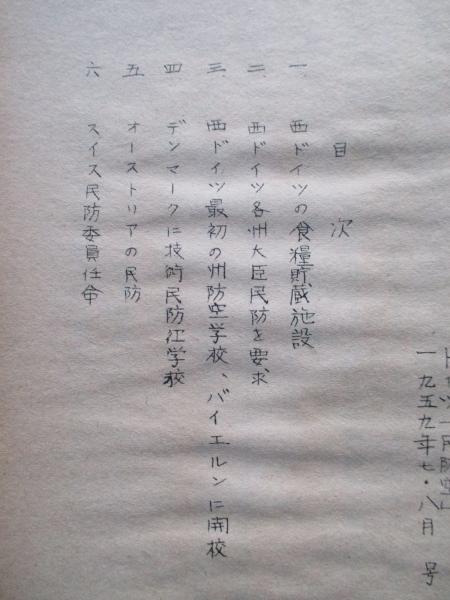 ドイツ「民防空」
一九五九年七・八月 号
目 次
一、西ドイツの食糧貯蔵施設
二、西ドイツ各州大臣民防を要求
三、西ドイツ最初の州防空学校、バイエルンに開校
四 デンマークに技術民防江学校
五 オーストリアの民防
六 スイス民防委員任命